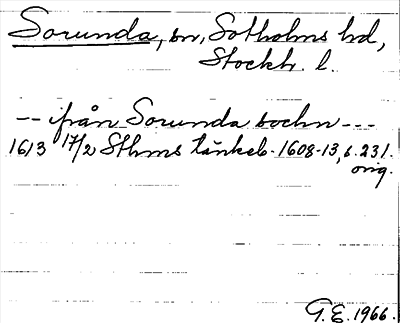 Sorunda, sn, Sotholms hd,
Stockh. l.
-- från Sorunda sochn ---
1613 17/2 Sthms tänkeb. 1608-13, s. 231.
orig.
G.E. 1966.